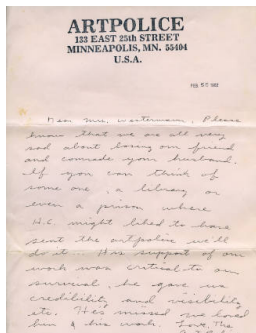 ARTPOLICE
133 EAST 25th STREET
MINNEAPOLIS, MN. 55404
U.S.A.
FEB
Dear Mrs. Westermann, Please
know that we are all very
sad about losing our friend
and comrade your husband.
If you can think of
some one, a library or
even a prison where
H.C. might liked to have
sent the artpolice we'll
do it. His support of our
work was critical to our
survival, he gave us
credibility and visibility
etc. He's missed, we loved
him & his work. Love, The